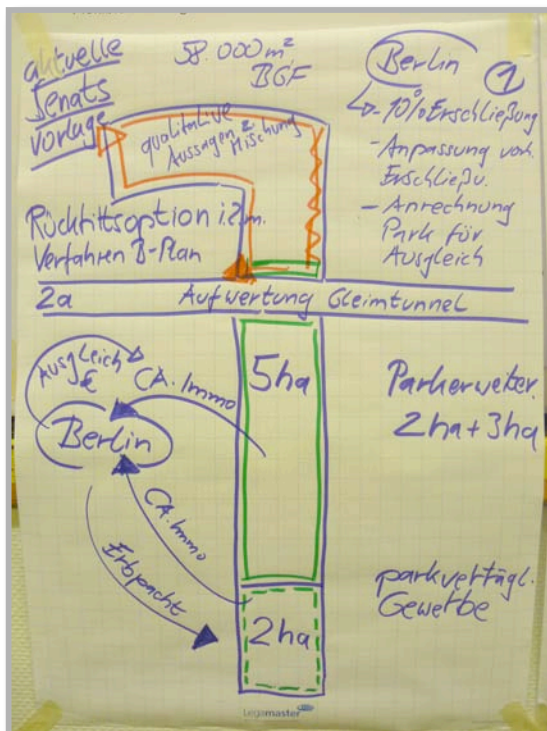 aktuelle
Senats
vorlage
58.000m²
BGF
Berlin
1
10% Erschließung
- Anpassung vorh.
Erschließu.
- Anrechnung
Park für
Ausgleich
qualitative
Aussagen z.
Mischung
Rücktittsoption i.Z.m.
Verfahren B-Plan
2a Aufwertung Gleimtunnel
Ausgleich
€
CA.Immo
Berlin
5ha
Parkerweiter.
2ha+3ha
CA.Immo
Erbpacht
2ha
parkverträgl.
Gewerbe
Legamaster